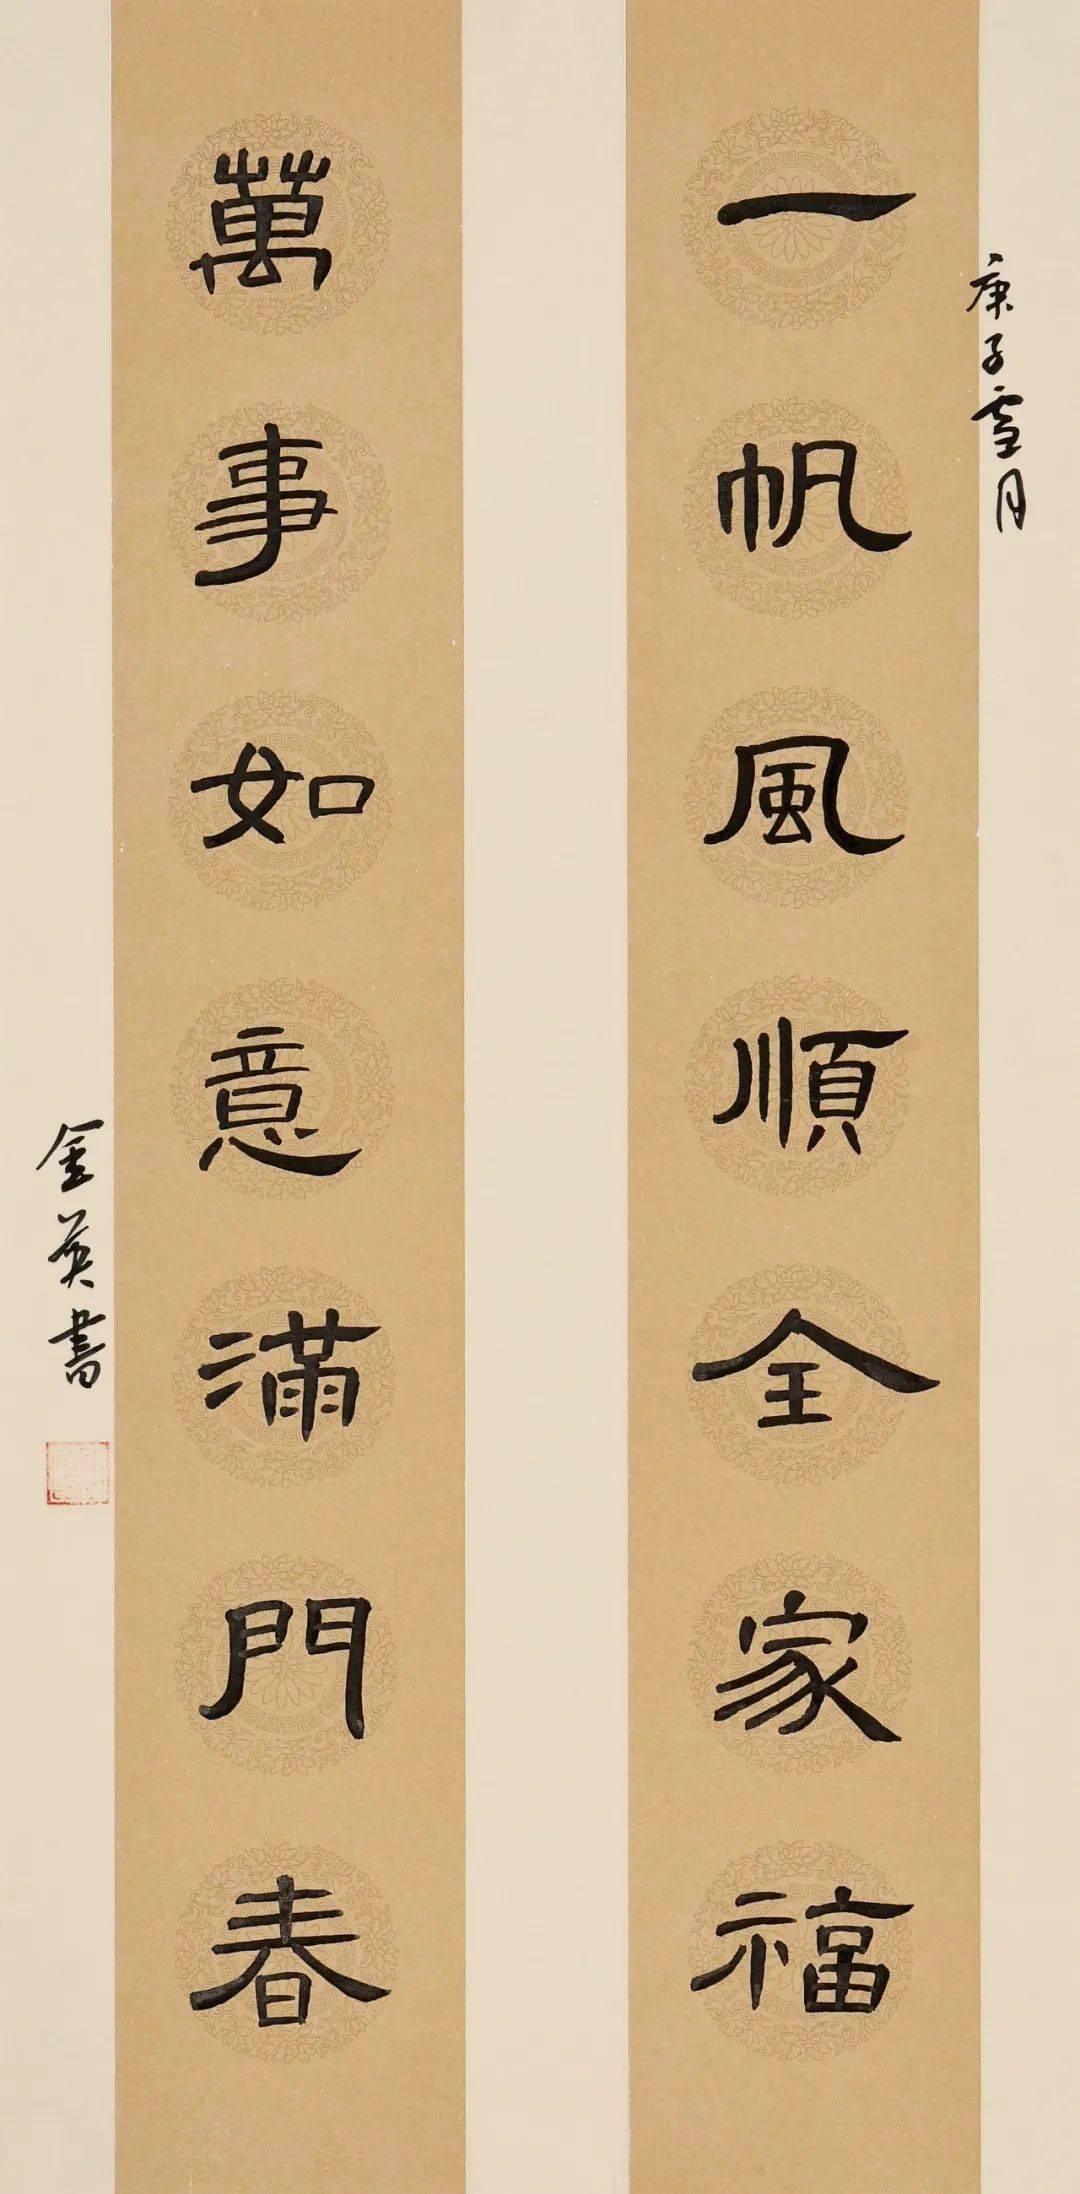 庚子雪月
一帆風順全家福
萬事如意滿門春
金英書